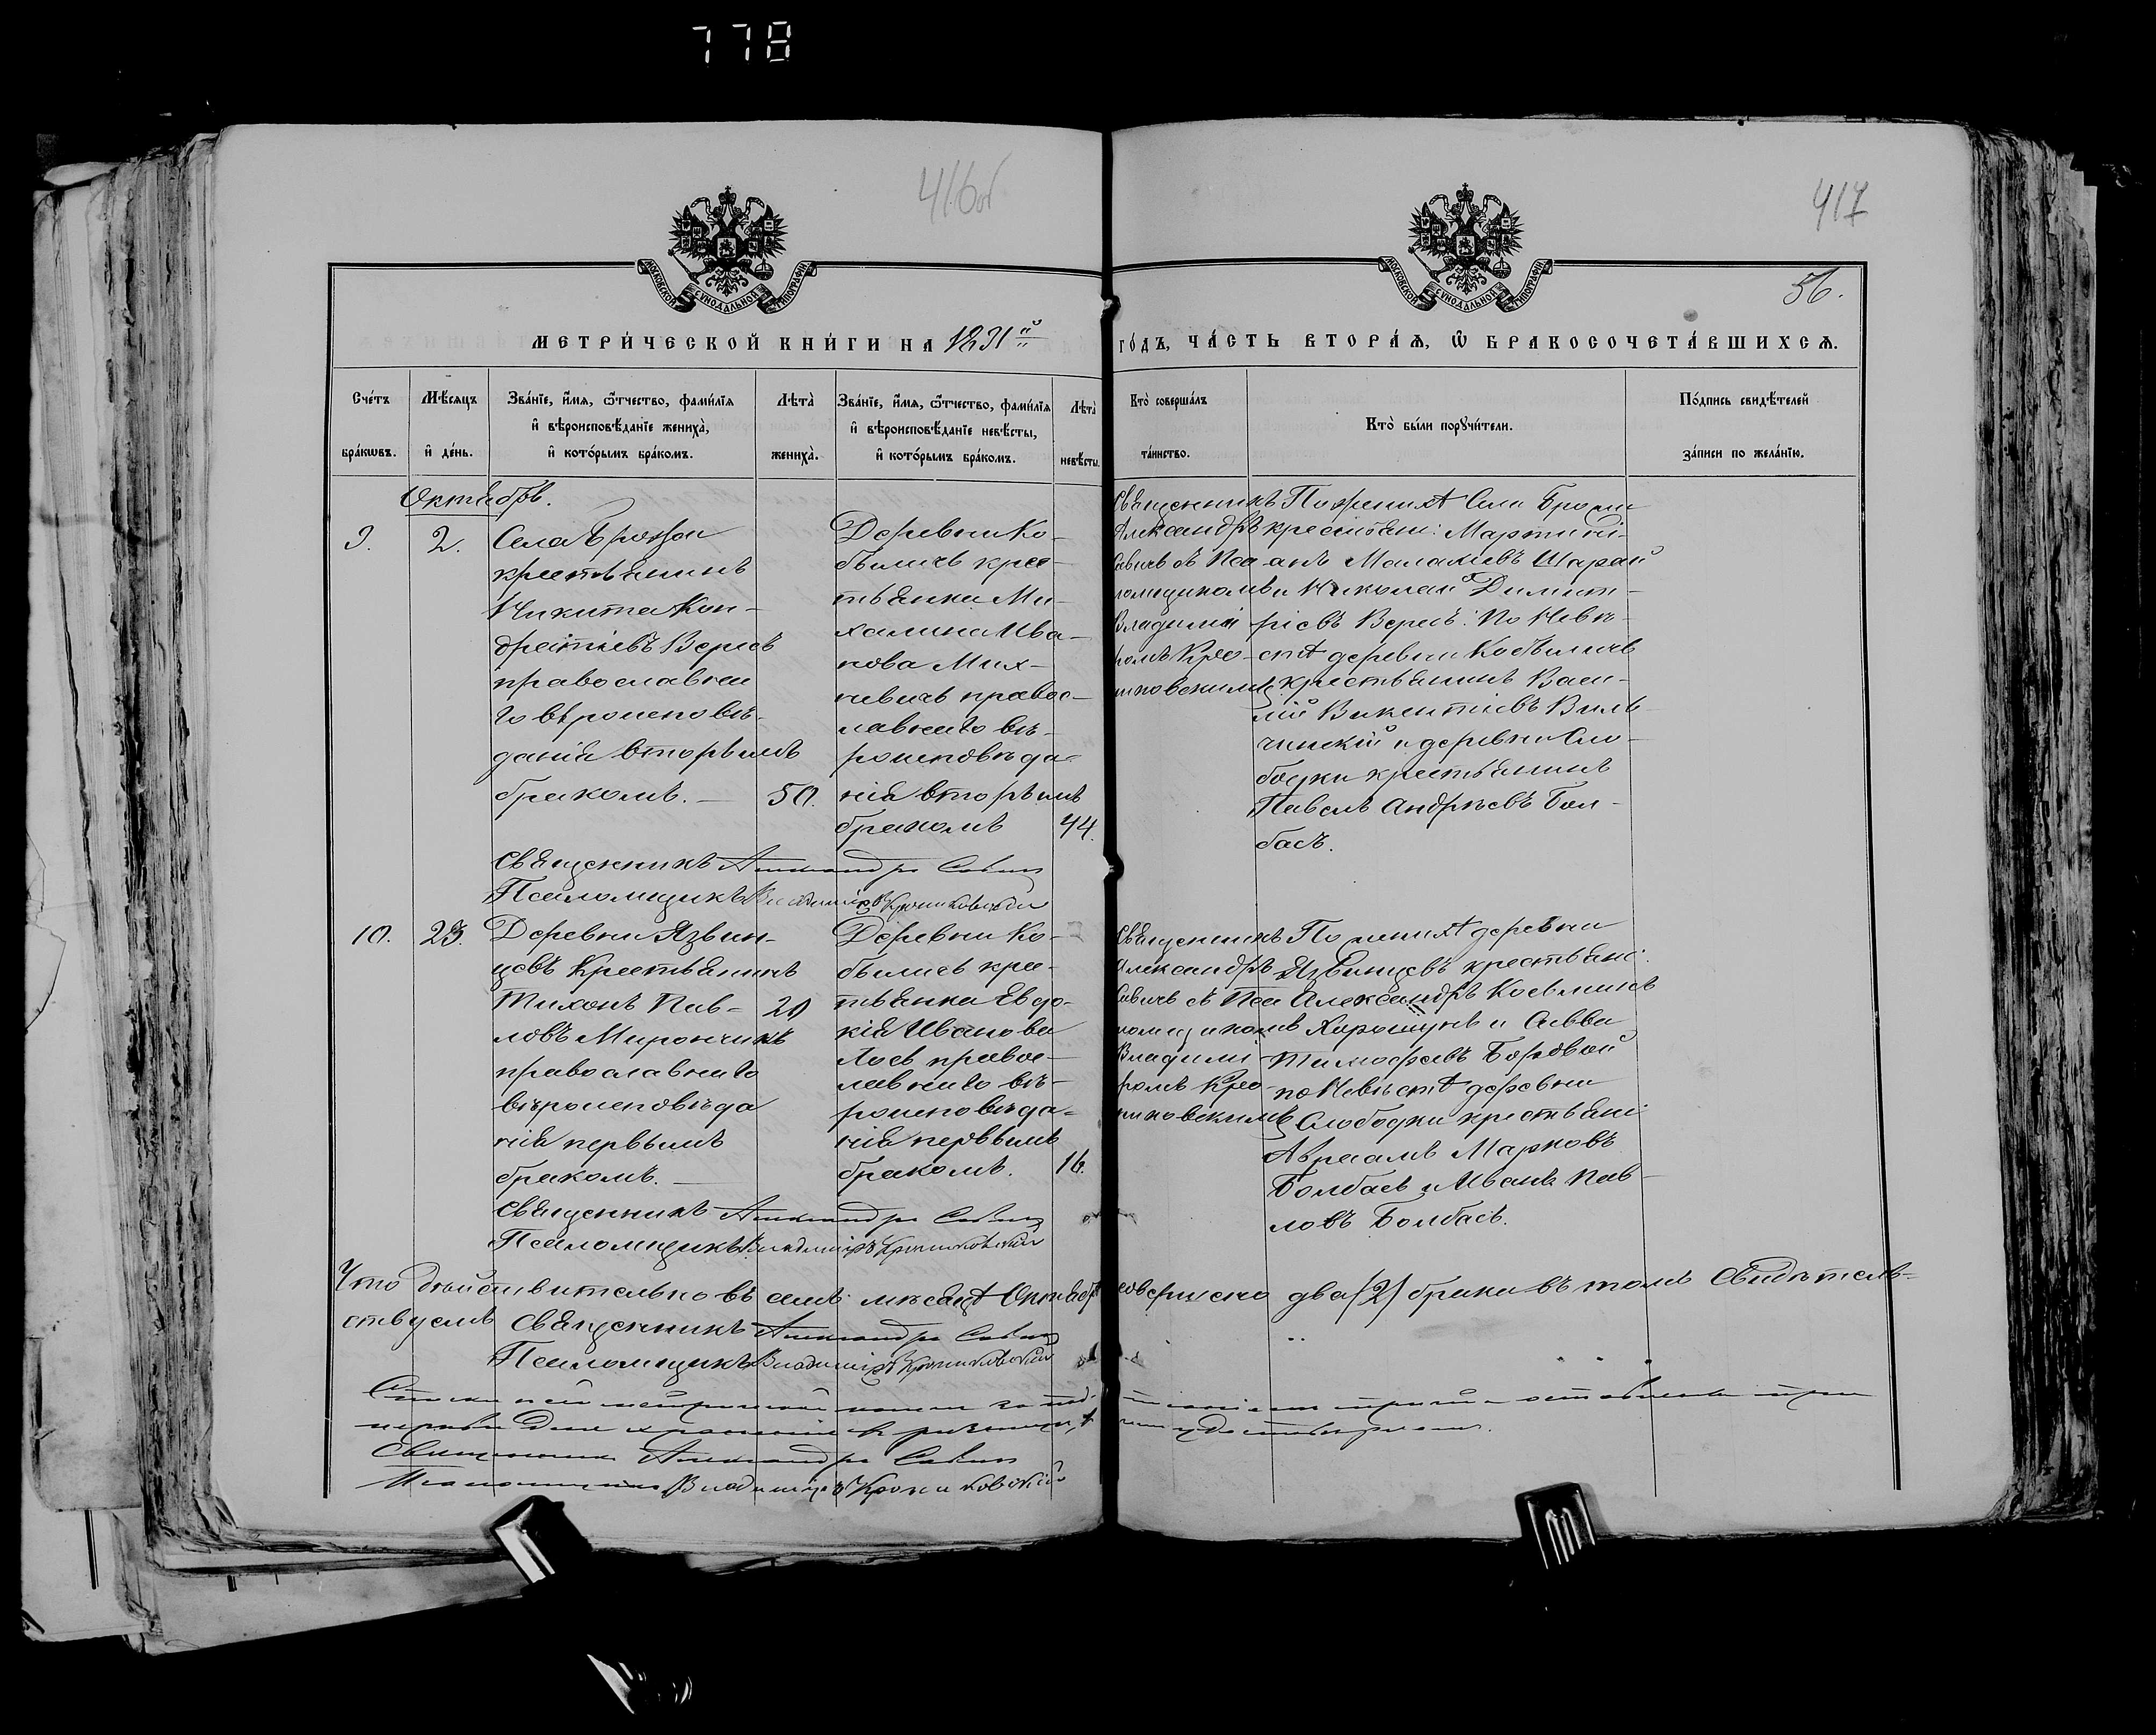 778
416об
417
56.
МОСКОВСКОЙ СѴНОДАЛЬНОЙ ТИПОГРАФІИ
МОСКОВСКОЙ СѴНОДАЛЬНОЙ ТИПОГРАФІИ
МЕТРИ́ЧЕСКОЙ КНИ́ГИ НА 1891й
ГО́ДЪ, ЧА́СТЬ ВТОРА́Ѧ, Ѡ҆ БРАКОСОЧЕТА́ВШИХСѦ.
Сче́тъ бра́кѡвъ.
Мѣ́сѧцъ и҆ де́нь.
Зва́нїе, и҆́мѧ, ѻ҆́тчество, фами́лїѧ и҆ вѣроисповѣ́данїе жениха̀, и҆ кото́рымъ бра́комъ.
Лѣта̀ жениха̀.
Зва́нїе, и҆́мѧ, ѻ҆́тчество, фами́лїѧ и҆ вѣроисповѣ́данїе невѣ́сты, и҆ кото́рымъ бра́комъ.
Лѣта̀ невѣ́сты.
Кто̀ соверша́лъ та́инство.
Кто̀ бы́ли порꙋчи́тели.
По́дпись свидѣ́телей за́писи по жела́нїю.
Октябрь.
9.
2.
Села
крестьянинъ
Никита Кон-
дратіевъ Вересъ
православна
го вѣроисповѣ-
данія вторымъ
бракомъ. —
50.
Деревни Ко-
быличъ крес-
тьянка Ми-
халина Ива-
нова Мих-
невичъ правос-
лавнаго вѣ-
роисповѣда-
нія вторымъ
бракомъ
44.
Священникъ
Александръ
Савичъ съ Пса
ломщикомъ
Владимі
ромъ Кро-
никовскимъ
По женихѣ Села
крестьяне: Мартині-
анъ Малахіевъ Шарай
и Николай Димит-
ріевъ Вересъ: По Невѣ-
стѣ деревни Кобыличъ
крестьянинъ Васи-
лій Викентіевъ Виль
чинскій и деревни Сло-
бодки крестьянинъ
Павелъ Андреевъ Бол-
басъ.
Священникъ Александръ Савичъ
Псаломщикъ Владиміръ Крониковскій
10.
23.
Деревни Язвин-
цевъ Крестьянинъ
Тихонъ Пав-
ловъ Мирончикъ
православнаго
вѣроисповѣда
нія первымъ
бракомъ. —
20
Деревни Ко-
быличъ крес-
тьянка Евдо-
кія Иванова
Лось правос-
лавнаго вѣ-
роисповѣда-
нія первымъ
бракомъ.
16.
Священникъ
Александръ
Савичъ съ Пса
ломщикомъ
Владимі-
ромъ Кро-
никовскимъ
По женихѣ деревни
Язвинцевъ крестьяне:
Александръ Косьминъ
Хорошунъ и Савва
Тимофеевъ Боровой
по Невѣстѣ деревни
Слободки крестьяне
Авраамъ Марковъ
Болбасъ и Иванъ Пав-
ловъ Болбасъ.
Священникъ Александръ Савичъ
Псаломщикъ Владиміръ Крониковскій
Что дѣйствительно въ семъ мѣсяцѣ Октябрѣ совершено два (2) брака въ томъ Свидѣтель-
ствуемъ Священникъ Александръ Савичъ
Псаломщикъ Владиміръ Крониковскій
метрической
церкви для храненія въ ризницѣ,
Священникъ Александръ Савичъ
Псаломщикъ Владиміръ Крониковскій